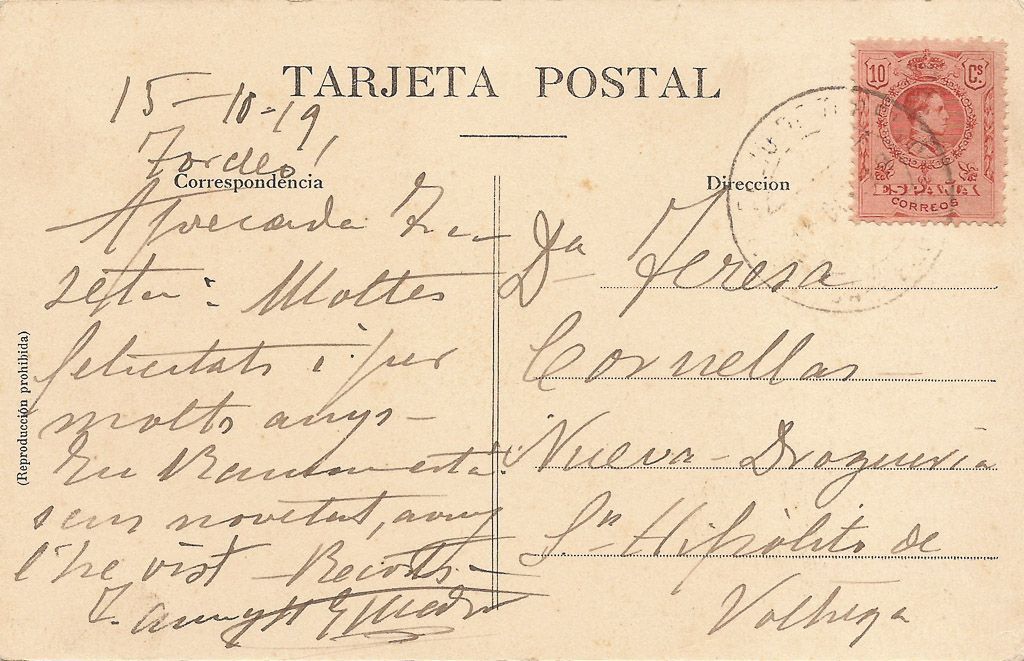 TARJETA POSTAL
15-10-19
Correspondencia
Apreciada Te-
seta: Moltes
felicitats i per
molts anys-
En
sens novetat, avuy
l'he vist - Recorts-
Direccion
Dª Teresa
Cornellas
Nueva Droguería
Sn Hipólito de
Voltregá
10 Cs
ESPAÑA
CORREOS
(Reproducción prohibida)